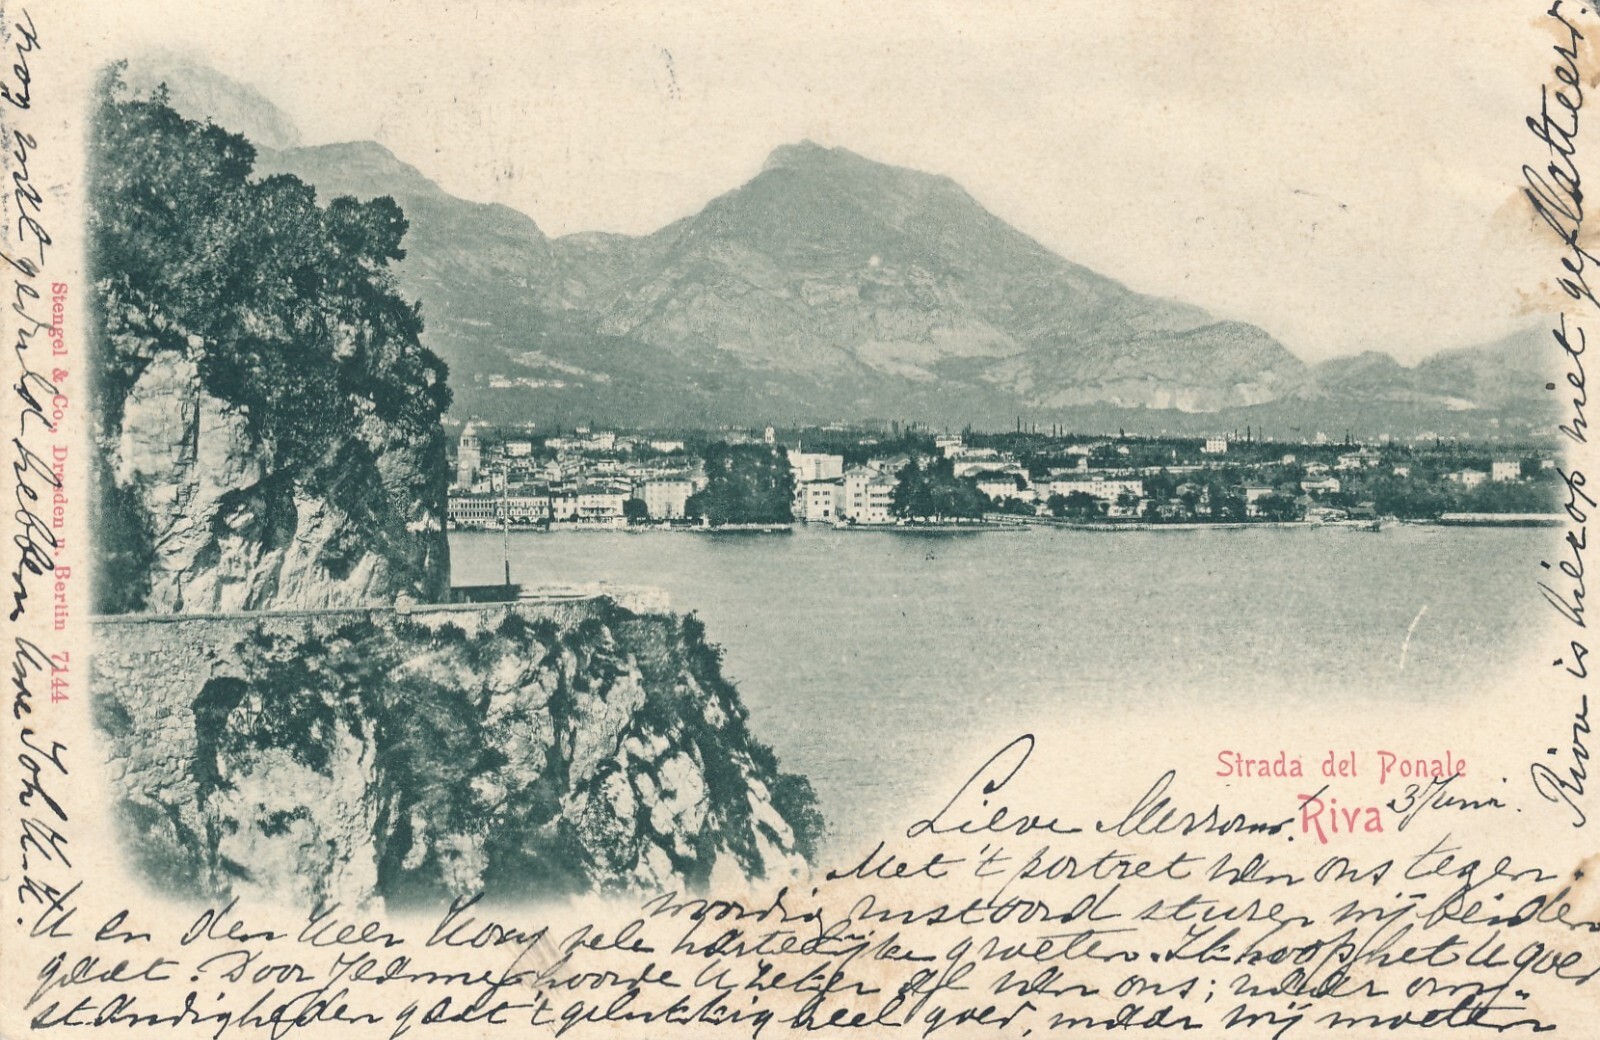 Strada del Ponale
Riva
3 Juni.
Lieve
Met 't portret van ons tegen-
woordig rustoord sturen wij beiden
U en den Heer Kosy vele hartelijke groeten. Ik hoop het U goed
gaat. Door Jeanne hoorde U zeker al van ons; naar om-
standigheden gaat 't gelukkig heel goed, maar wij moeten
nog wat geduld hebben. Uwe Joh
Riva is hierop niet geflatteerd.
Stengel & Co., Dresden u. Berlin 7144